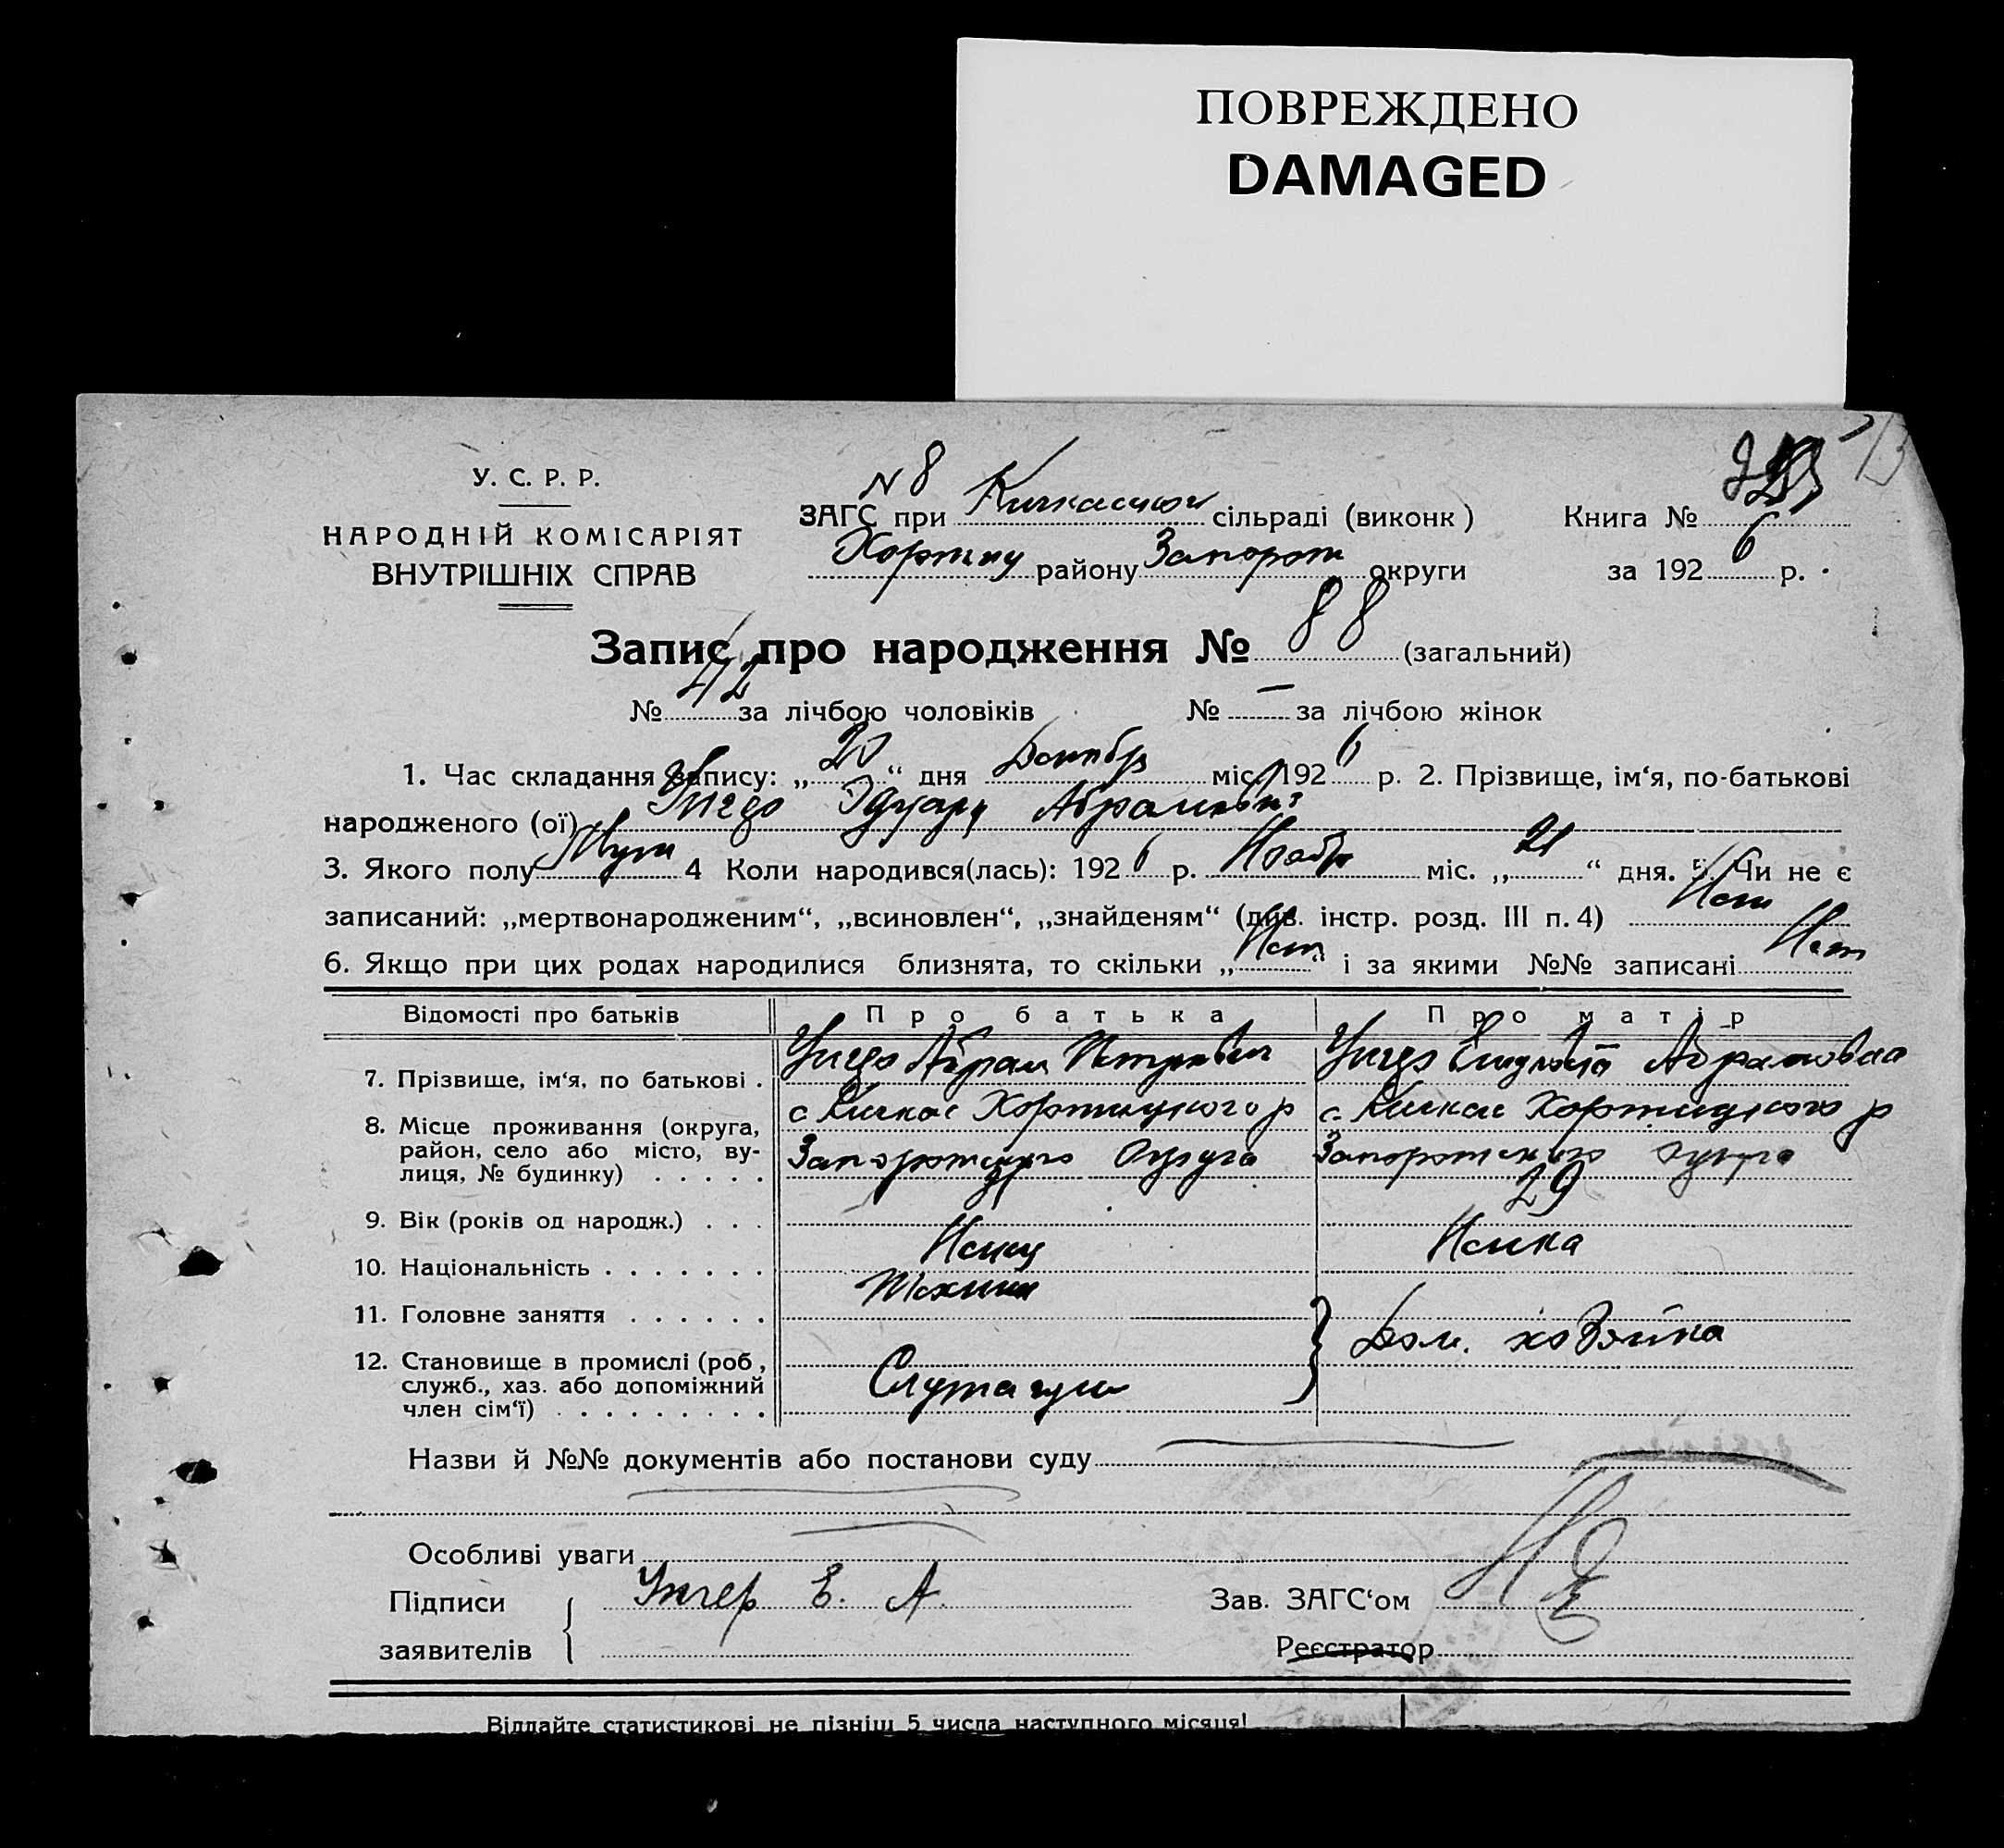 ПОВРЕЖДЕНО
DAMAGED
У. С. Р. Р.
НАРОДНІЙ КОМІСАРІЯТ
ВНУТРІШНІХ СПРАВ
N 8
ЗАГС при сільраді (виконк)
Книга №
району Запорож округи
за 1926 р.
Запис про народження № 88 (загальний)
№ 42 за лічбою чоловіків № — за лічбою жінок
1. Час складання запису: „20“ дня міс. 1926 р. 2. Прізвище, ім‘я, по-батькові
народженого (ої) Унгер Эдуард Абрамович
3. Якого полу Муж 4 Коли народився(лась): 1926 р. Ноябр міс. „21“ дня. 5. Чи не є
записаний: „мертвонародженим“, „всиновлен“, „знайденям“ (див. інстр. розд. III п. 4) Нет
6. Якщо при цих родах народилися близнята, то скільки „Нет“ і за якими №№ записані Нет
Відомості про батьків Про батька Про матір
7. Прізвище, ім‘я, по батькові . Унгер Абрам Петрович Унгер Абрамовна
8. Місце проживання (округа, район, село або місто, ву-лиця, № будинку) . . . . .
с Кичкас Хортицкого р
Запорожского Округа
с. Кичкас Хортицкого р
Запорожского округа
9. Вік (років од народж.) . . . 29
10. Національність . . . . . . . Немец Немка
11. Головне заняття . . . . . . Техник
Дом. хозяйка
12. Становище в промислі (роб., служб., хаз. або допоміжний член сім‘ї) . . . . . . . . . Служащий
Назви й №№ документів або постанови суду
Особливі уваги
Підписи заявителів Унгер Е. А.
Зав. ЗАГС‘ом
Реєстратор
Віддайте статистикові не пізніш 5 числа наступного місяця!